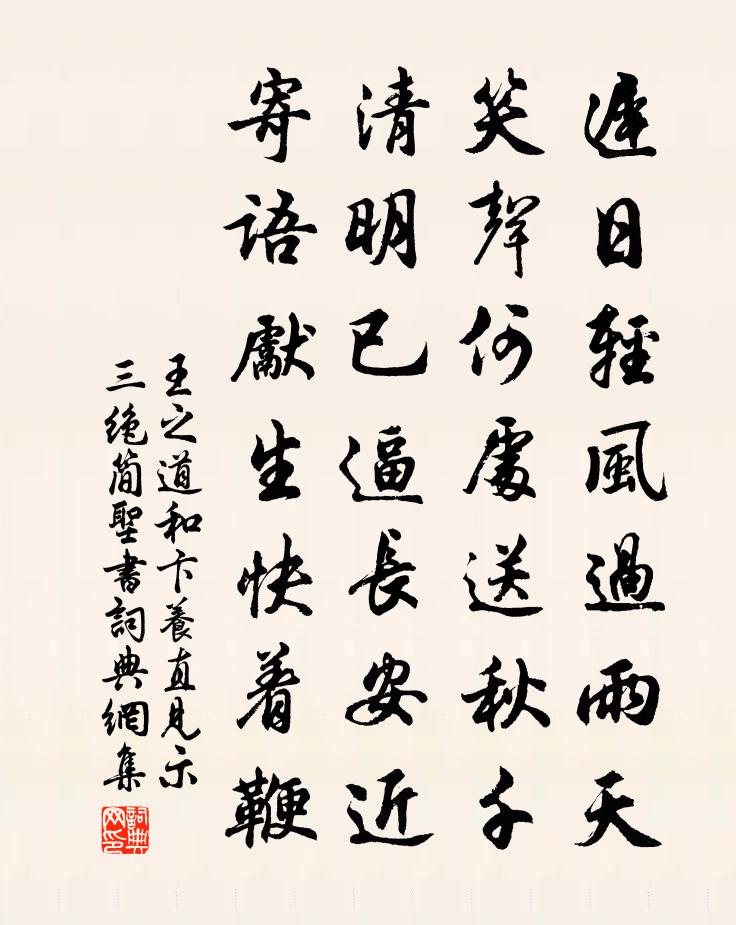 遲日輕風過雨天
笑聲何處送秋千
清明已逼長安近
寄語獻生快着鞭
王之道和卞養直見示
三絶簡聖書詞典網集
詞典
网印